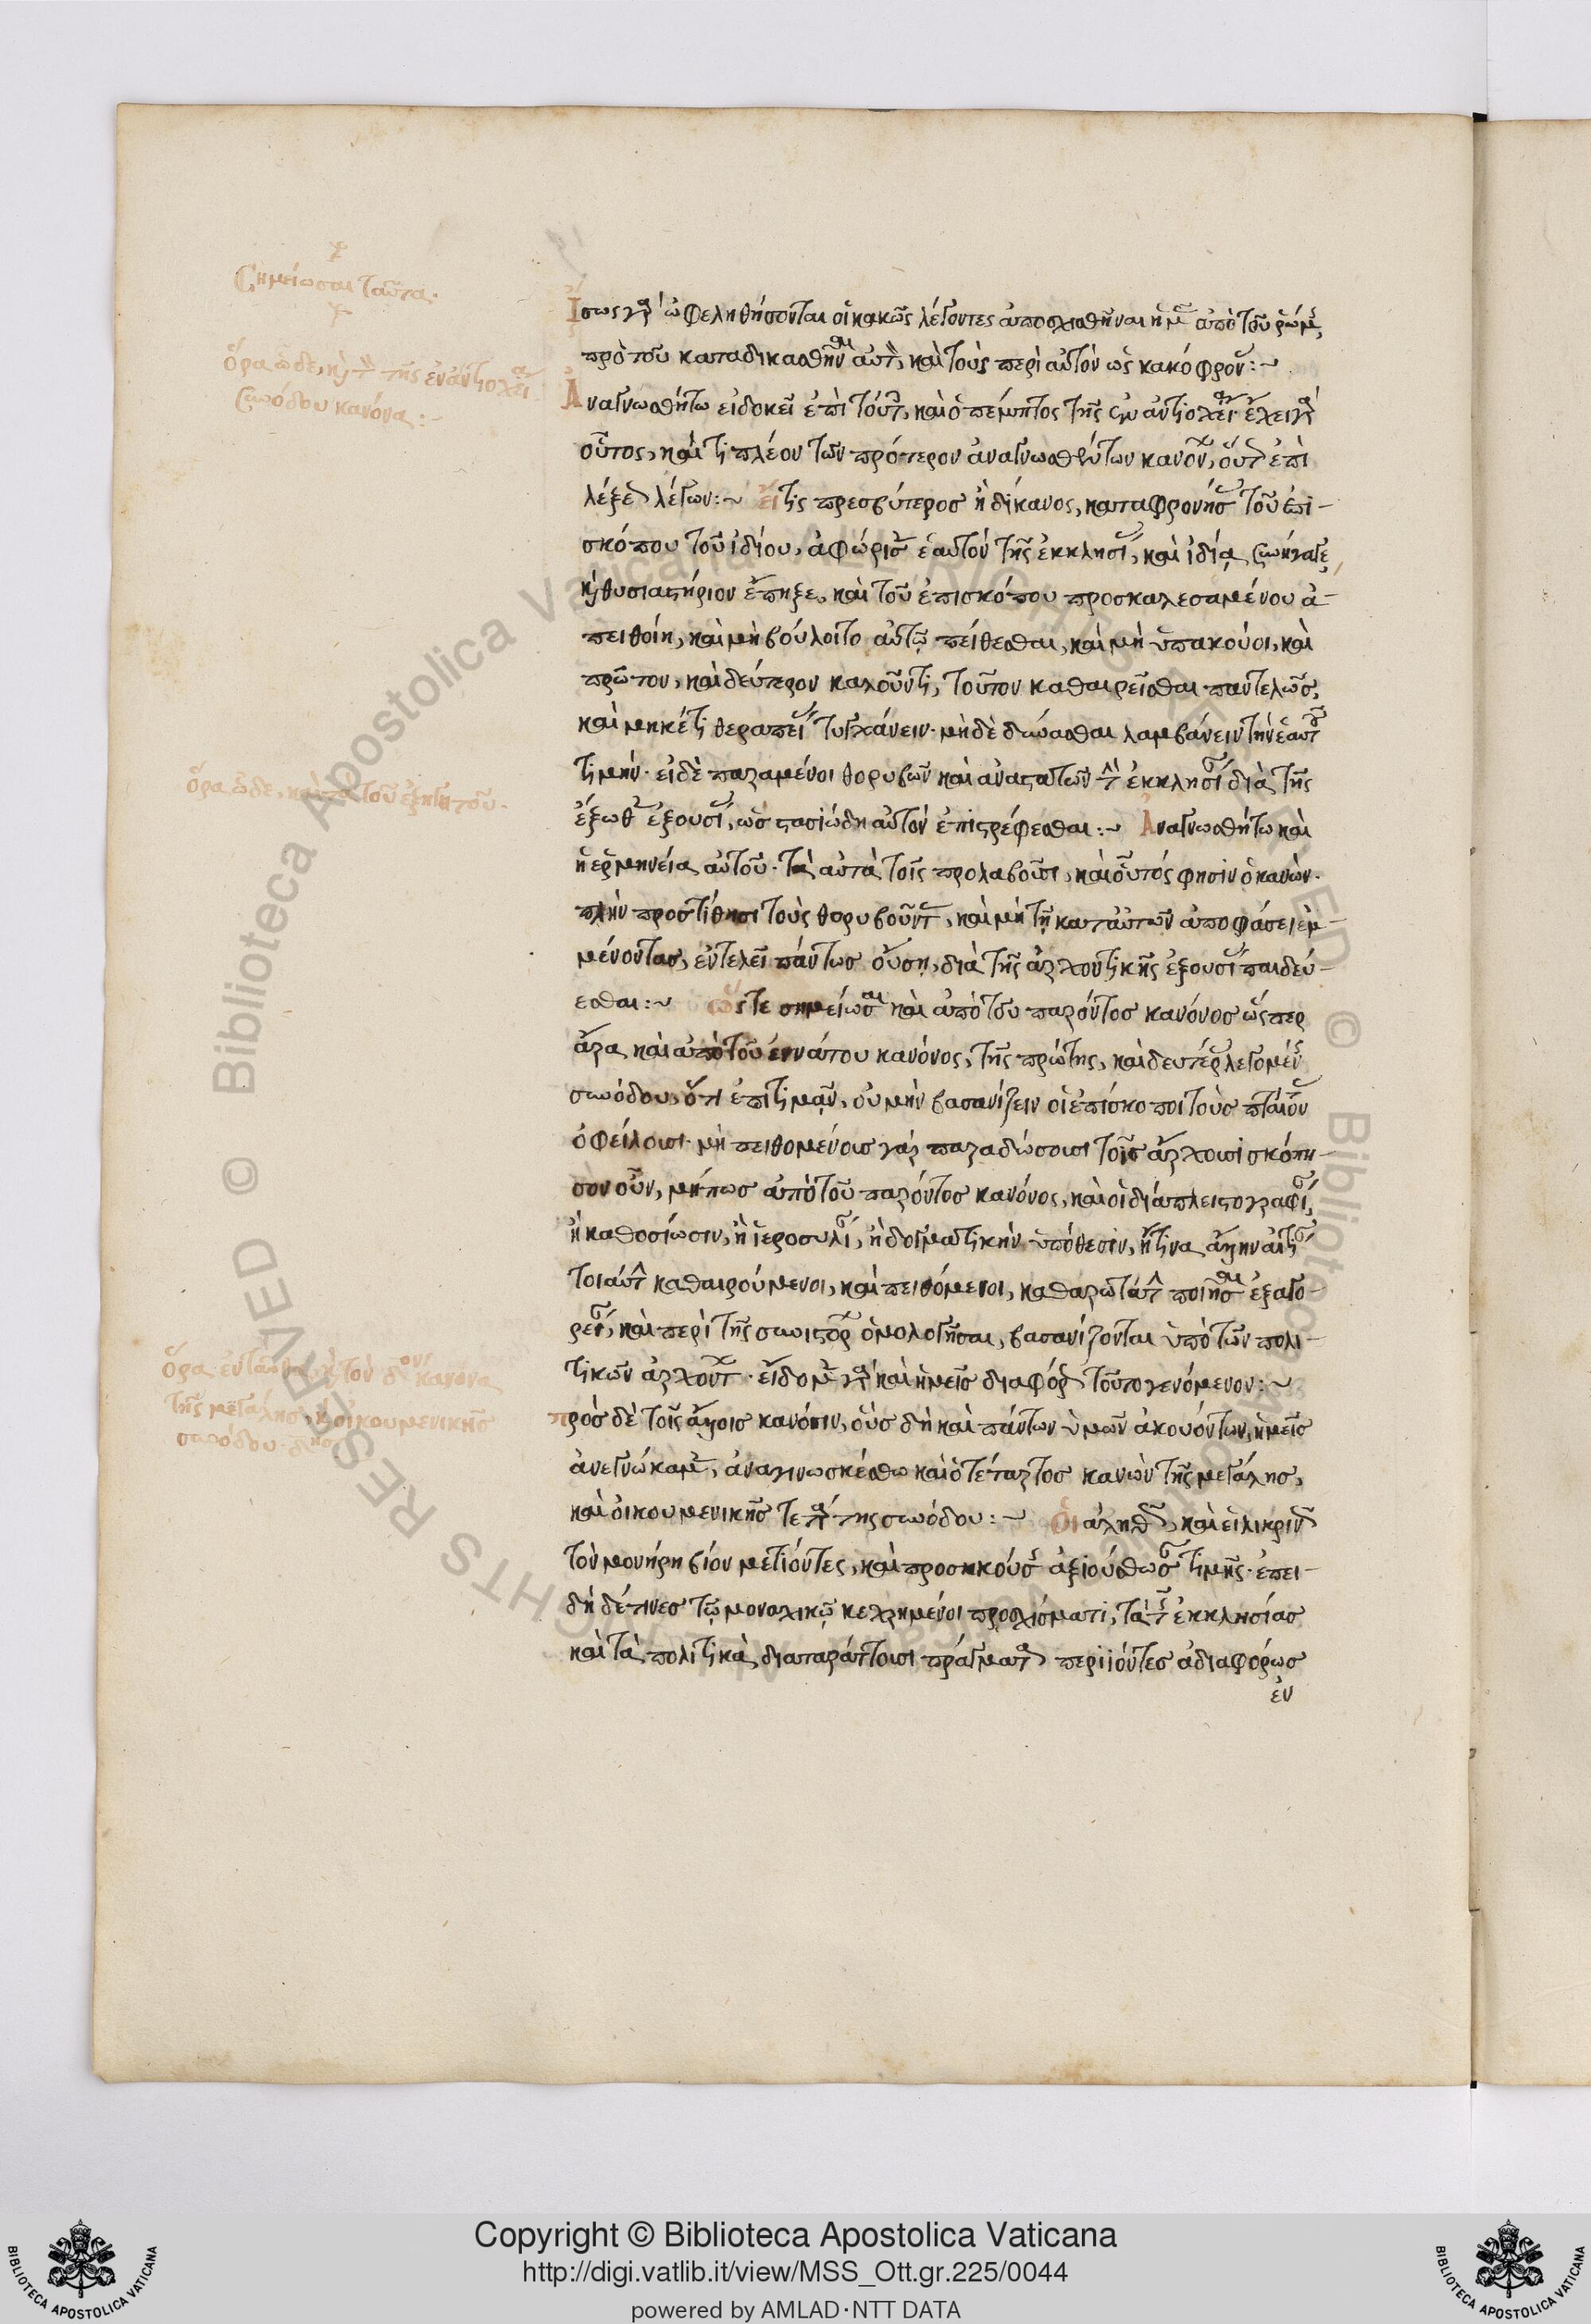 Σημείωσαι ταῦτα.
ὅρα ὧδε, κ τῆς ἐν ἀντιοχεία
συνόδου κανόνα :-
ὅρα ὧδε, τοῦ ἐξηγητοῦ.
ὅρα ἐνταῦθα, κ τὸν δ κανόνα
τῆς μεγάλης, κ οἰκουμενικῆς
συνόδου
Ἴσως γὰρ ὠφεληθήσονται οἱ κακῶς λέγοντες ἀποσχισθῆναι ἡμ ἀπὸ τοῦ ῥώμ,
πρὸ τοῦ καταδικασθῆναι αὐτ, καὶ τοὺς περὶ αὐτὸν ὡς κακόφρον :~
Ἀναγνωσθήτω εἰ δοκεῖ ἐπὶ τούτ, καὶ ὁ πέμπτος τῆς ἐν ἀντιοχεία· ἔχει γὰρ
οὗτος, καὶ τὶ πλέον τῶν πρότερον ἀναγνωσθέντων κανόν, οὕτ ἐπὶ
λέξε λέγων :~ εἴ τις πρεσβύτερος ἢ διάκονος, καταφρονήσ τοῦ ἐπι-
σκόπου τοῦ ἰδίου, ἀφώρισ ἑαυτὸν τῆς ἐκκλησί, καὶ ἰδία συνήγαγε,
κ θυσιαστήριον ἔπηξε, καὶ τοῦ ἐπισκόπου προσκαλεσαμένου ἀ-
πειθοίη, καὶ μὴ βούλοιτο αὐτῷ πείθεσθαι, καὶ μὴ ὑπακούοι, καὶ
πρῶτον, καὶ δεύτερον καλοῦντι, τοῦτον καθαιρεῖσθαι παντελῶς,
καὶ μηκέτι θεραπεί τυγχάνειν· μὴ δὲ δύνασθαι λαμβάνειν τὴν ἑαυτ
τιμήν· εἰ δὲ παραμένοι θορυβῶν καὶ ἀναστατῶν τὴν ἐκκλησί διὰ τῆς
ἔξωθ ἐξουσί, ὡς στασιώδη αὐτὸν ἐπιστρέφεσθαι :~ Ἀναγνωσθήτω καὶ
ἡ ἑρμηνεία αὐτοῦ· τὰ αὐτὰ τοῖς προλαβοῦσι, καὶ οὗτός φησιν ὁ κανών·
πλὴν προστίθησι τοὺς θορυβοῦντ, καὶ μὴ τῇ κατ αὐτῶν ἀποφάσει ἐμ-
μένοντας, ἐντελεῖ πάντως οὔση, διὰ τῆς ἀρχοντικῆς ἐξουσί παιδεύ-
εσθαι :~ ὥστε σημείωσαι καὶ ἀπὸ τοῦ παρόντος κανόνος ὥσπερ
ἄρα καὶ ἀπὸ τοῦ ἐννάτου κανόνος, τῆς πρώτης, καὶ δευτέρ λεγομέν
συνόδου, ὅτι ἐπιτιμᾶν, οὐ μὴν βασανίζειν οἱ ἐπίσκοποι τοὺς πταίον
ὀφείλουσι· μὴ πειθομένοις γὰρ παραδώσουσι τοῖς ἄρχουσι σκόπη-
σον οὖν, μήπως ἀπὸ τοῦ παρόντος κανόνος, καὶ οἱ διὰ πλειστογραφί,
ἢ καθοσίωσιν, ἢ ἱεροσυλί, ἢ δογματικὴν ὑπόθεσιν, ἤ τινα ἄλλην αἰτί
τοιαύτ καθαιρούμενοι, καὶ πειθόμενοι, καθαρωτάτ ποιῆσαι ἐξαγο-
ρεί, καὶ περὶ τῆς συνιστορ ὁμολογῆσαι, βασανίζονται ὑπὸ τῶν πολι-
τικῶν ἀρχόντ· εἴδομ γὰρ καὶ ἡμεῖς διαφόρ τοῦτο γενόμενον :~
πρὸς δὲ τοῖς ἄλλοις κανόσιν, οὓς δὴ καὶ πάντων ὑμῶν ἀκουόντων, ἡμεῖς
ἀνεγνώκαμ, ἀναγινωσκέσθω καὶ ὁ τέταρτος κανὼν τῆς μεγάλης,
καὶ οἰκουμενικῆς τετάρτης συνόδου :~ Οἱ ἀληθ, καὶ εἰλικριν
τὸν μονήρη βίον μετιόντες, καὶ προσηκούσ ἀξιούσθωσ τιμῆς· ἐπει-
δὴ δέ τινες τῷ μοναχικῷ κεχρημένοι προσχίσματι, τὰ τ ἐκκλησίας
καὶ τὰ πολιτικὰ διαταράττουσι πράγματα περιιόντες ἀδιαφόρως
ἐν
Copyright © Biblioteca Apostolica Vaticana
http://digi.vatlib.it/view/MSS_Ott.gr.225/0044
powered by AMLAD·NTT DATA
BIBLIOTECA APOSTOLICA VATICANA
BIBLIOTECA APOSTOLICA VATICANA